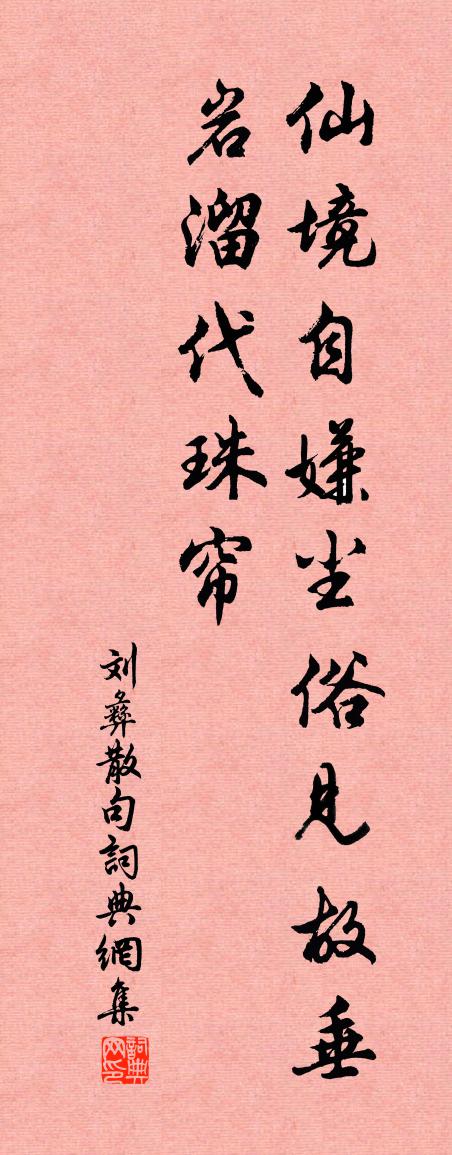 仙境自嫌尘俗见故垂
岩溜代珠帘
刘彝散句詞典網集
詞典网印